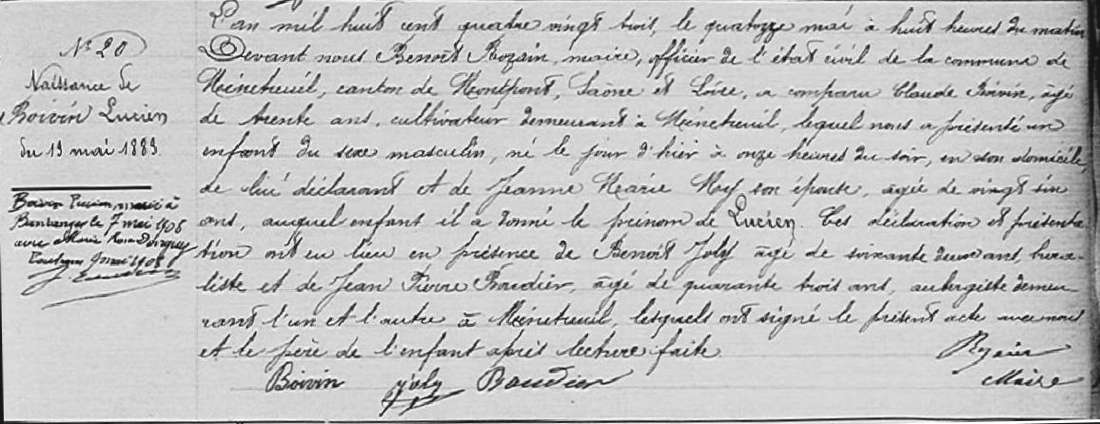 N° 20
Naissance de
Boivin Lucien
du 13 mai 1883
Boivin Lucien, marié à
le 7 mai 1908
avec Marie
9 mai 1908
L'an mil huit cent quatre vingt trois, le quatorze mai à huit heures du matin
Devant nous Benoît Rozain, maire, officier de l'état civil de la commune de
Ménetreuil, canton de Montpont, Saône et Loire, a comparu Claude Boivin, âgé
de trente ans, cultivateur demeurant à Ménetreuil, lequel nous a présenté un
enfant du sexe masculin, né le jour d'hier à onze heures du soir, en son domicile,
de lui déclarant et de Jeanne Marie son épouse, âgée de vingt
ans, auquel enfant il a donné le prénom de Lucien. Ces déclaration et présenta-
tion ont eu lieu en présence de Benoît Joly âgé de soixante deux ans, bura-
liste et de Jean Pierre Boudier, âgé de quarante trois ans, aubergiste demeu-
rant l'un et l'autre à Ménetreuil, lesquels ont signé le présent acte avec nous
et le père de l'enfant après lecture faite.
Rozain
Boivin Joly Boudier Maire